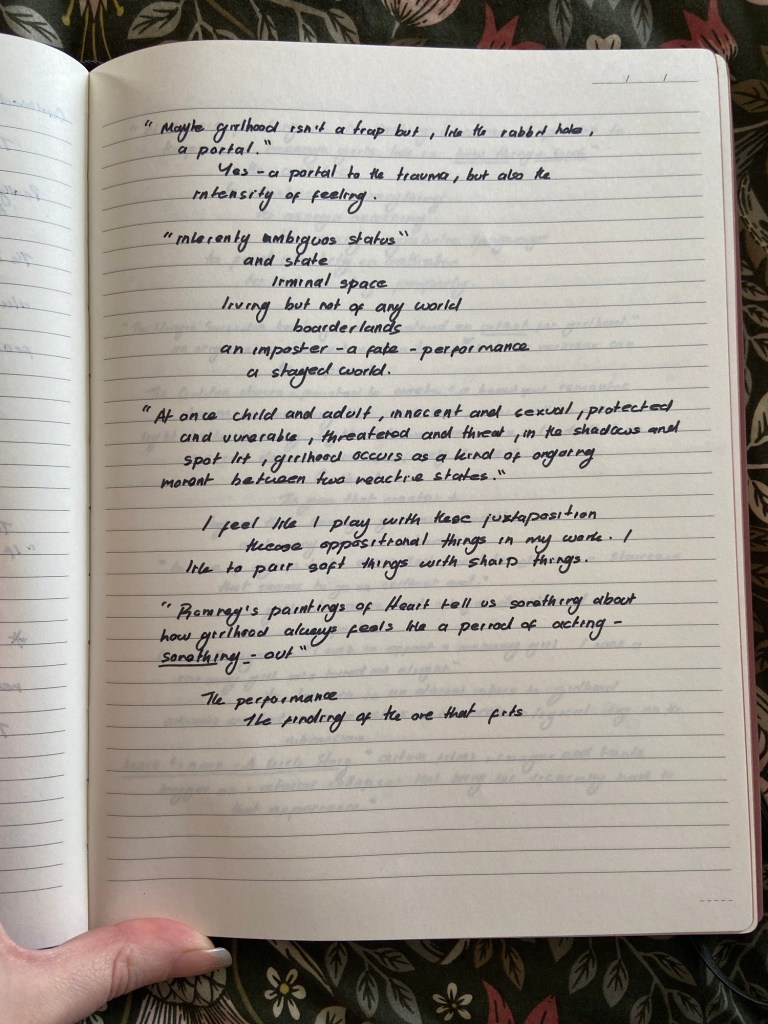 "Maybe girlhood isn't a trap but, like the rabbit hole,
a portal."
Yes - a portal to the trauma, but also the
intensity of feeling.
"inherenty ambiguos status"
and state
liminal space
living but not of any world
boarderlands
an imposter - a fake - performance
a staged world.
"At once child and adult, innocent and sexual, protected
and vunerable, threatened and threat, in the shadows and
spot lit, girlhood occurs as a kind of ongoing
moment between two reactive states."
I feel like I play with these juxtaposition
oppositional things in my work. I
like to pair soft things with sharp things.
paintings of Heart tell us something about
how girlhood always feels like a period of acting -
something - out"
The performance
The finding of the one that fits